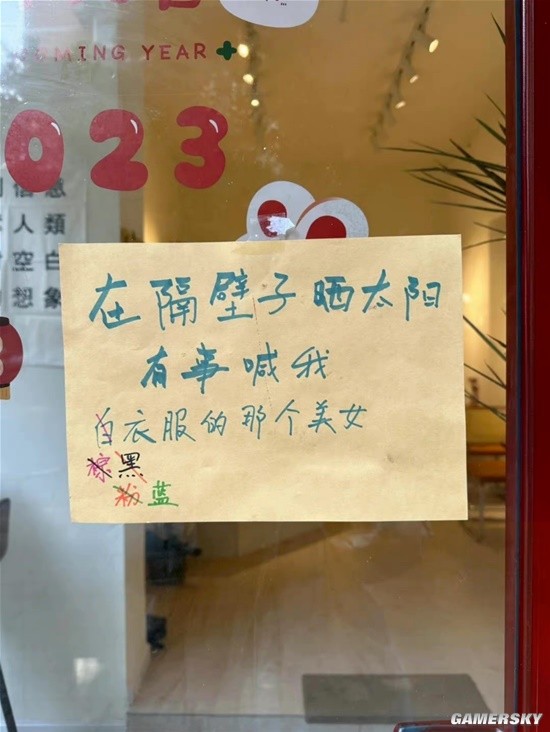 OMING YEAR
023
人類
空白
想象
在隔壁子晒太阳
有事喊我
白衣服的那个美女
棕黑
粉蓝
GAMERSKY